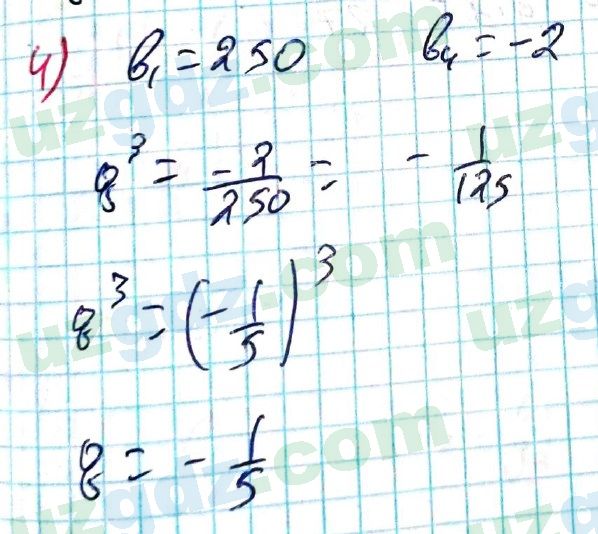 4) b₁ = 250 b₄ = -2
q³ = -2/250 = -1/125
q³ = (-1/5)³
q = -1/5
uzgdz.com
uzgdz.com
uzgdz.com